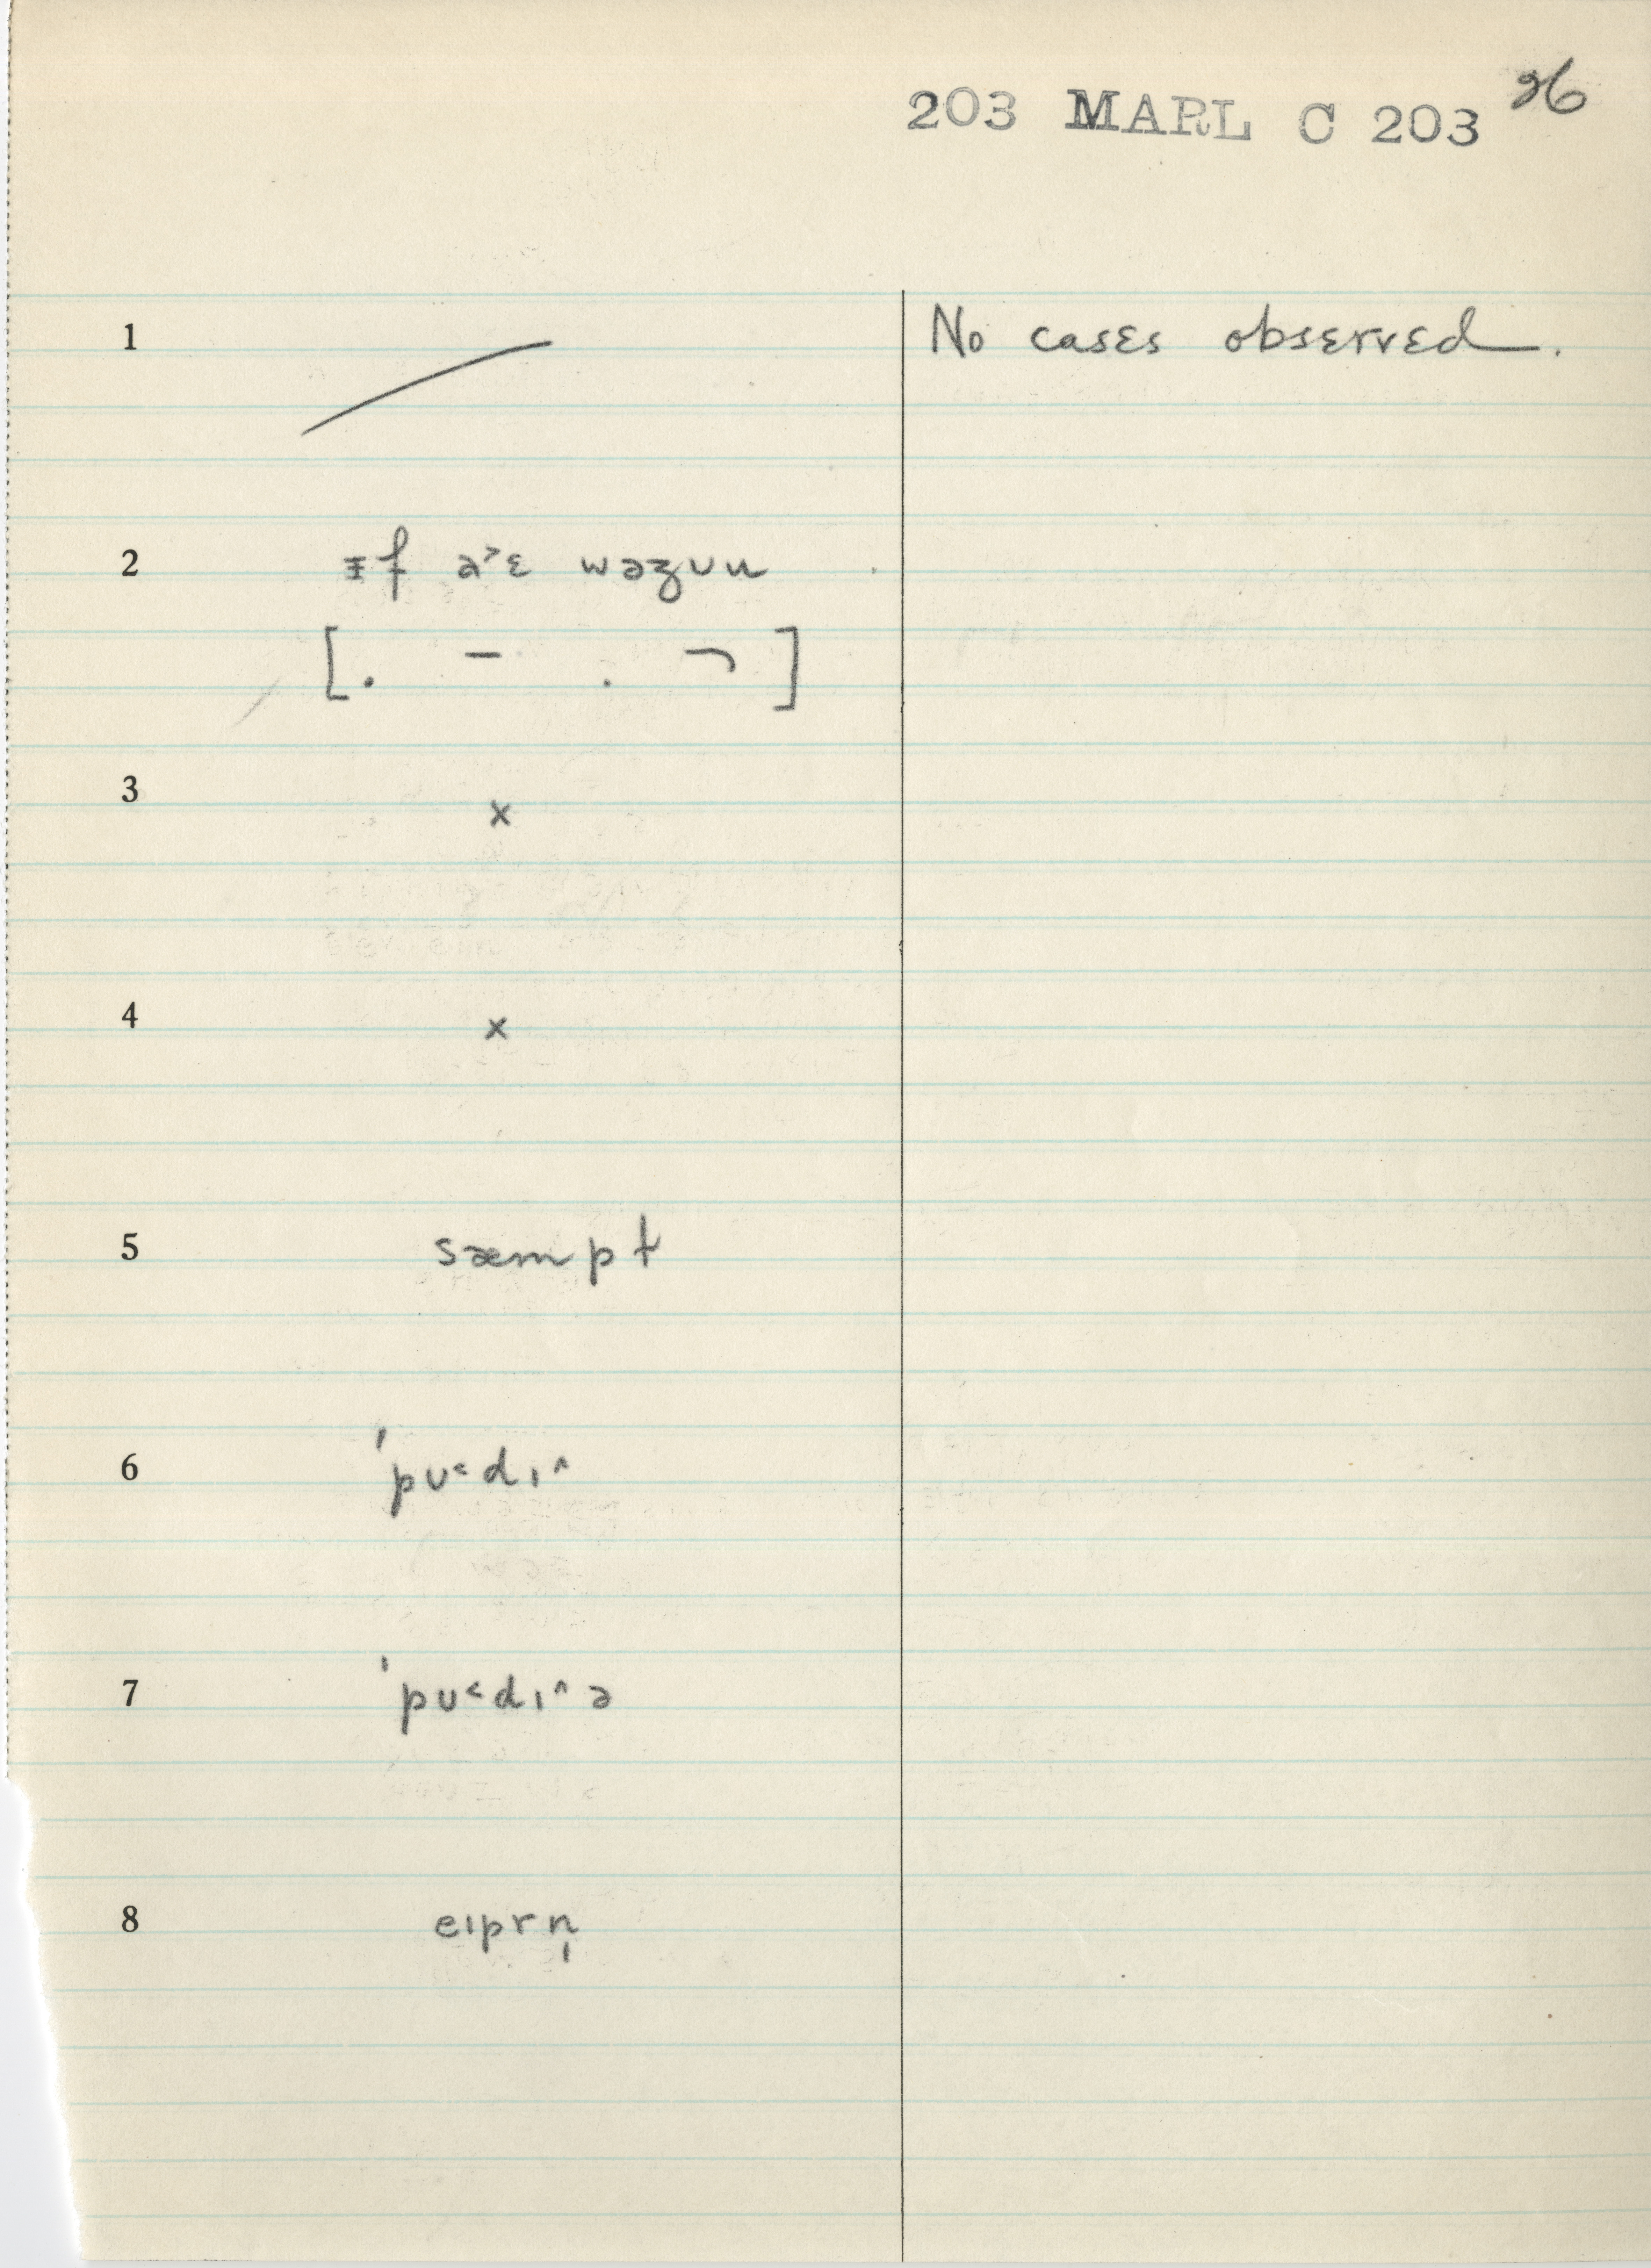 203 MARL C 203 26
1 No cases observed.
2 ɪf a˃ɛ wəzʊu
[. – . ¬]
3 x
4 x
5 sæmpt
6 'pʊ˂dɪ^
7 'pʊ˂dɪ^ə
8 eɪprn̩